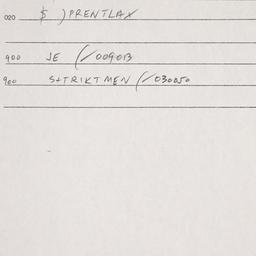 020 $ ) PRENTLAX
900 JE (/009013
900 S+TRIKTMEN (/030050